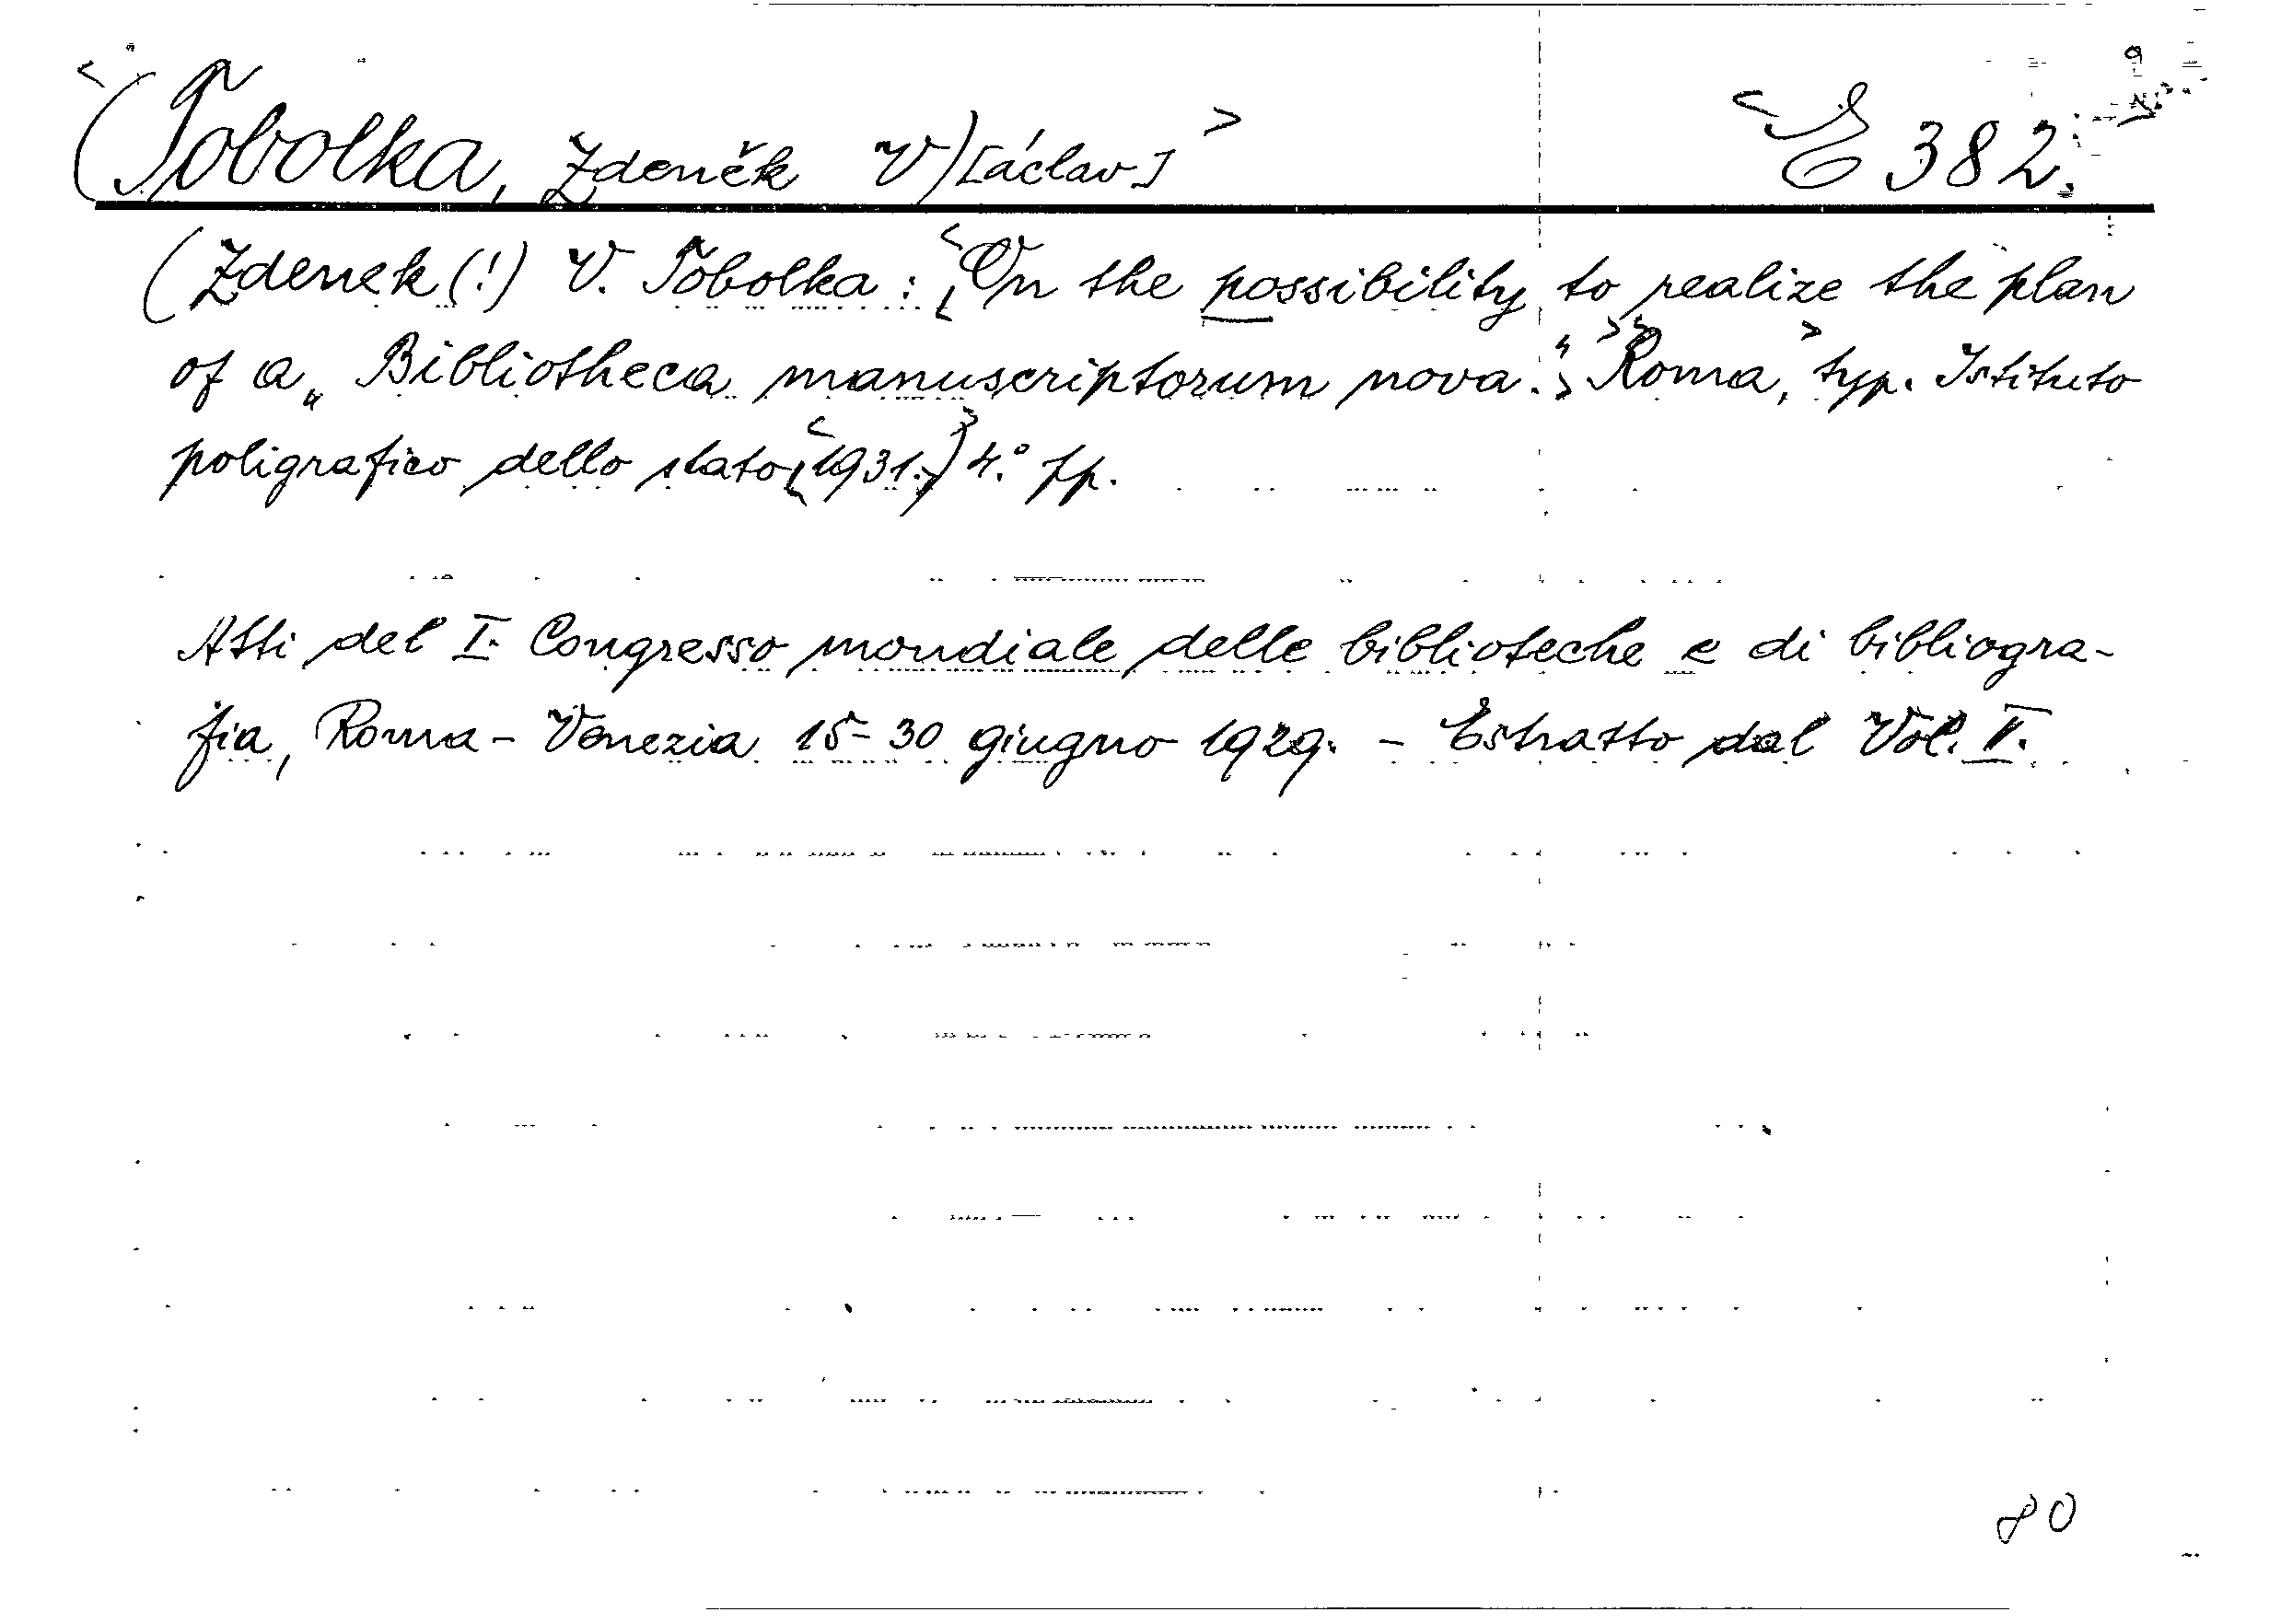 <(Tobolka, Zdeněk V)[áclav]> <E 382.
(Zdenek (!) V. Tobolka: <[On the possibility to realize the plan
of a „Bibliotheca manuscriptorum nova.“]> <Roma,> typ. Istituto
poligrafico dello stato [<1931.>]) 4.° fp.
Atti del I. Congresso mondiale delle biblioteche e di bibliogra-
fia, Roma - Venezia 15-30 giugno 1929. - Estratto dal Vol. II.
80